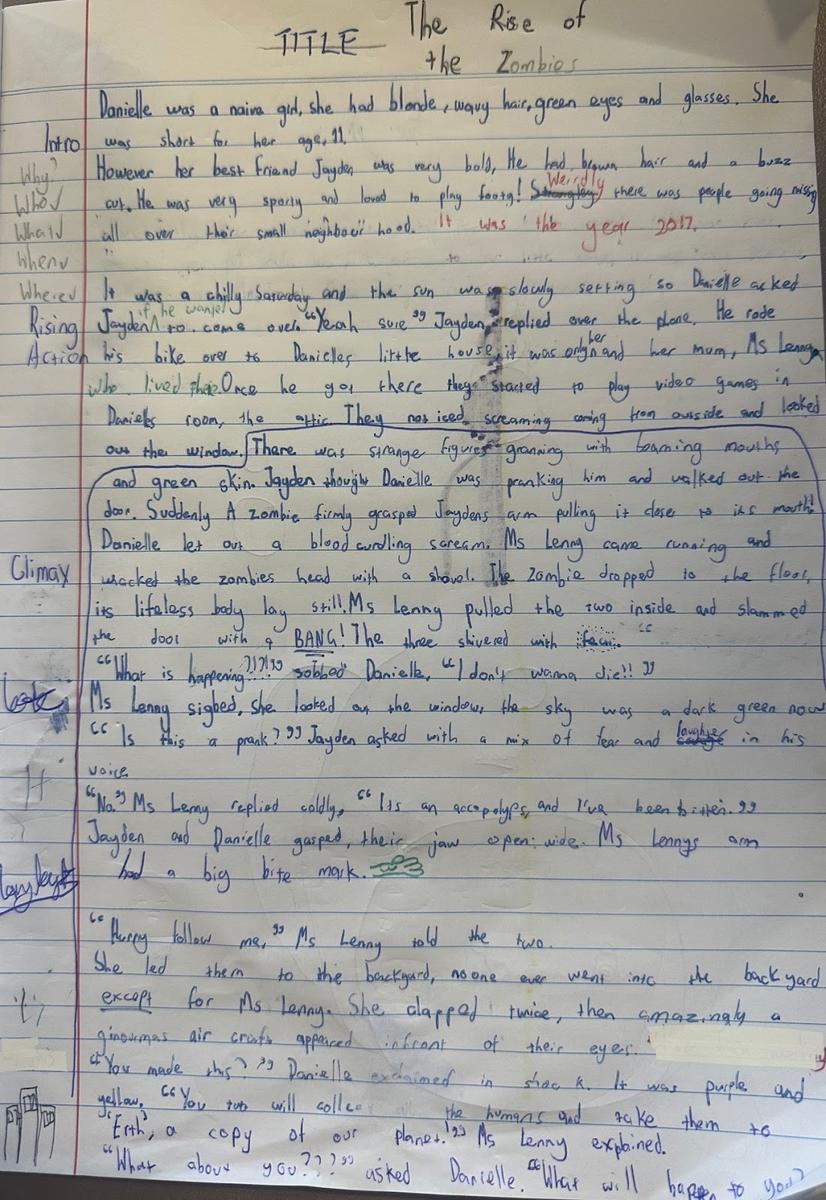 TITLE The Rise of
the Zombies
Danielle was a naive girl, she had blonde, wavy hair, green eyes and glasses. She
Intro was short for her age, 11.
Why? However her best friend Jayden was very bold, He had brown hair and a buzz
Who√ cut. He was very sporty and loved to play footy! Strangley Weirdly there was people going missing
What√ all over their small neighbour hood. It was the year 2017.
When√
Where√ It was a chilly Saturday and the sun was slowly setting so Danielle asked
Rising Jayden if he wanted to come over. "Yeah sure" Jayden replied over the phone. He rode
Action his bike over to Danielles little house, it was only her and her mum, Ms Lenny
who lived there. Once he got there they started to play video games in
Daniells room, the attic. They noticed screaming coming from outside and looked
out the window. There was strange figures groaning with foaming mouths
and green skin. Jayden thought Danielle was pranking him and walked out the
door. Suddenly A zombie firmly grasped Jaydens arm pulling it closer to its mouth!
Danielle let out a blood curdling scream. Ms Lenny came running and
Climax wacked the zombies head with a shovel. The Zombie dropped to the floor,
its lifeless body lay still. Ms Lenny pulled the two inside and slammed
the door with a BANG! The three shivered with fear.
"What is happening?!?!?!" sobbed Danielle, "I don't wanna die!!"
Ms Lenny sighed, she looked out the window, the sky was a dark green now
"Is this a prank?" Jayden asked with a mix of fear and laughter in his
voice
"No." Ms Lenny replied coldly, "Its an accapolyps, and I've been bitten."
Jayden and Danielle gasped, their jaw open wide. Ms Lennys arm
had a big bite mark.
"Hurry follow me," Ms Lenny told the two.
She led them to the backyard, no one ever went into the back yard
except for Ms Lenny. She clapped twice, then amazingly a
ginourmas air craft appeared infront of their eyes.
"You made this?" Danielle exclaimed in shock. It was purple and
yellow. "You two will collect all the humans and take them to
'Erth', a copy of our planet." Ms Lenny explained.
"What about you???" asked Danielle. "What will happen to you?